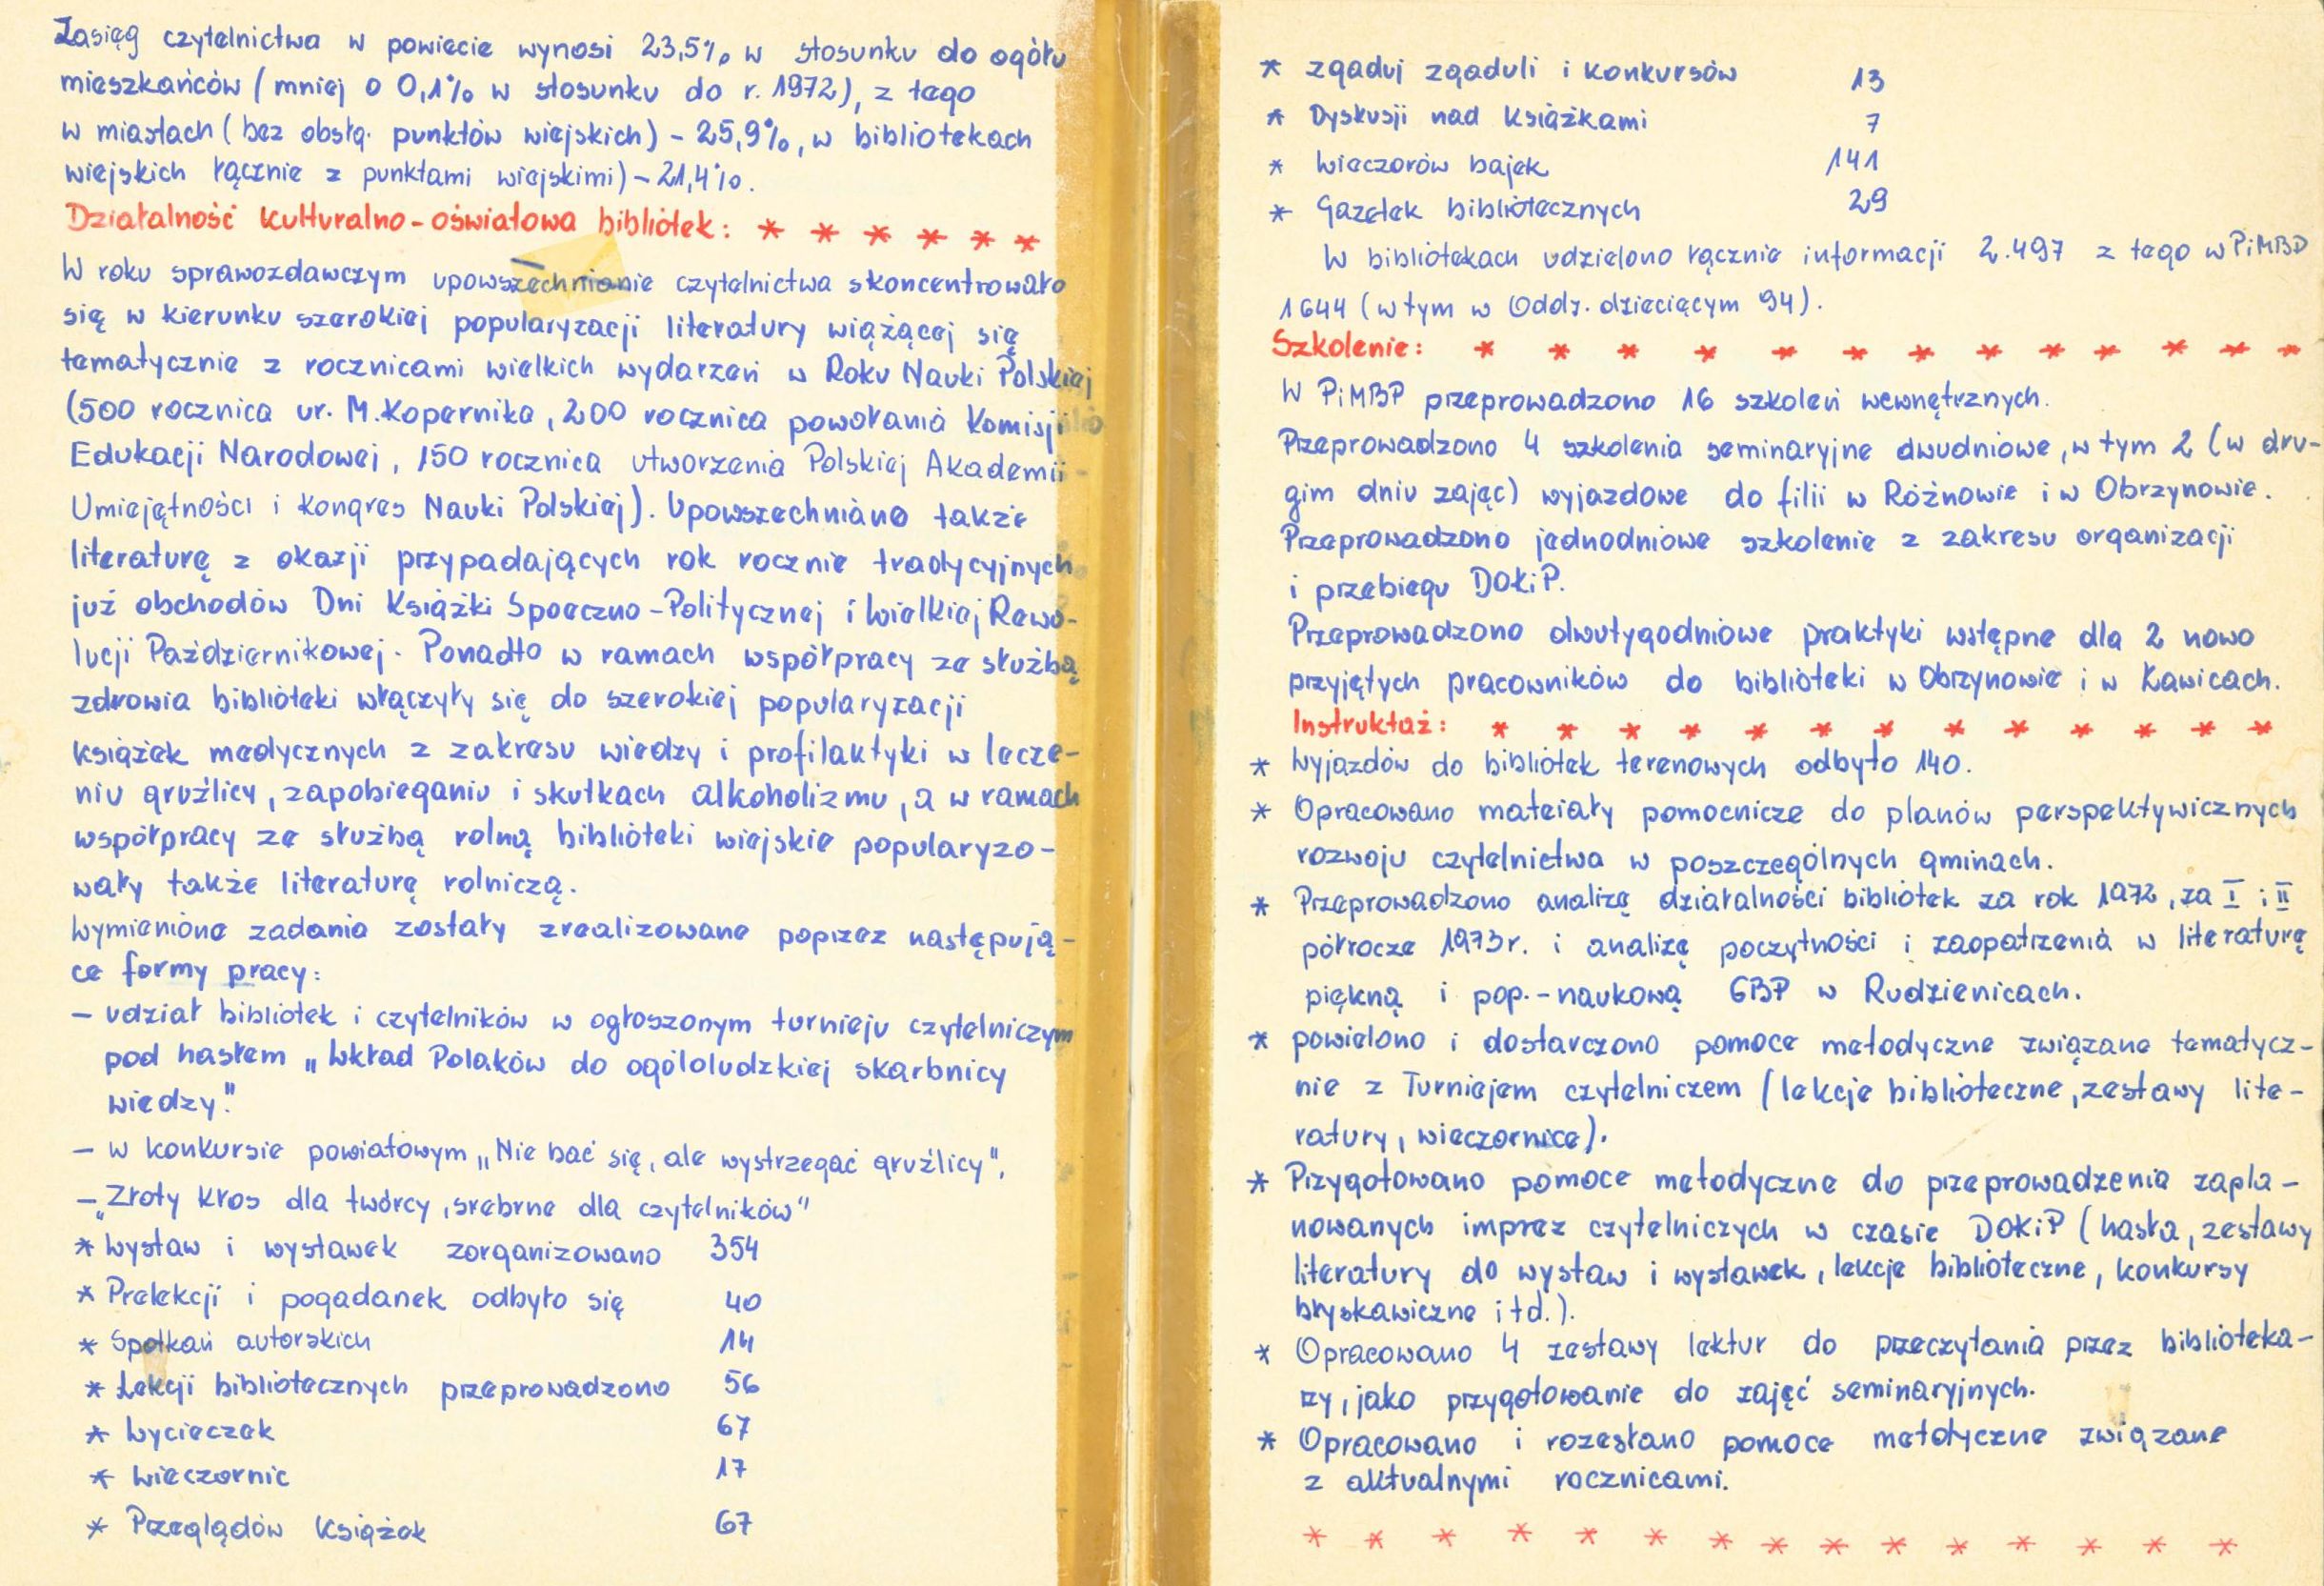 Zasięg czytelnictwa w powiecie wynosi 23,5% w stosunku do ogółu
mieszkańców (mniej o 0,1% w stosunku do r. 1972), z tego
w miastach (bez obsłg. punktów wiejskich) - 25,9%, w bibliotekach
wiejskich łącznie z punktami wiejskimi) - 21,4%.
Działalność kulturalno-oświatowa bibliotek: * * * * * *
W roku sprawozdawczym upowszechnianie czytelnictwa skoncentrowało
się w kierunku szerokiej popularyzacji literatury wiążącej się
tematycznie z rocznicami wielkich wydarzeń w Roku Nauki Polskiej
(500 rocznica ur. M. Kopernika, 200 rocznica powołania Komisji
Edukacji Narodowej, 150 rocznica utworzenia Polskiej Akademii
Umiejętności i Kongres Nauki Polskiej). Upowszechniano także
literaturę z okazji przypadających rok rocznie tradycyjnych
już obchodów Dni Książki Społeczno-Politycznej i Wielkiej Rewo-
lucji Październikowej. Ponadto w ramach współpracy ze służbą
zdrowia biblioteki włączyły się do szerokiej popularyzacji
książek medycznych z zakresu wiedzy i profilaktyki w lecze-
niu gruźlicy, zapobieganiu i skutkach alkoholizmu, a w ramach
współpracy ze służbą rolną biblioteki wiejskie popularyzo-
wały także literaturę rolniczą.
Wymienione zadania zostały zrealizowane poprzez następują-
ce formy pracy:
- udział bibliotek i czytelników w ogłoszonym turnieju czytelniczym
pod hasłem „Wkład Polaków do ogóloludzkiej skarbnicy
wiedzy."
- w konkursie powiatowym „Nie bać się, ale wystrzegać gruźlicy",
- „Złoty kłos dla twórcy, srebrne dla czytelników"
* Wystaw i wystawek zorganizowano 354
* Prelekcji i pogadanek odbyło się 40
* Spotkań autorskich 14
* Lekcji bibliotecznych przeprowadzono 56
* Wycieczek 67
* Wieczornic 17
* Przeglądów książek 67
* zgaduj zgaduli i konkursów 13
* Dyskusji nad książkami 7
* Wieczorów bajek 141
* Gazetek bibliotecznych 29
W bibliotekach udzielono łącznie informacji 2.497 z tego w PiMBP
1644 (w tym w Oddz. dziecięcym 94).
Szkolenie: * * * * * * * * * * * * *
W PiMBP przeprowadzono 16 szkoleń wewnętrznych.
Przeprowadzono 4 szkolenia seminaryjne dwudniowe, w tym 2 (w dru-
gim dniu zajęc) wyjazdowe do filii w Różnowie i w Obrzynowie.
Przeprowadzono jednodniowe szkolenie z zakresu organizacji
i przebiegu DOKiP.
Przeprowadzono dwutygodniowe praktyki wstępne dla 2 nowo
przyjętych pracowników do biblioteki w Obrzynowie i w Ławicach.
Instruktaż: * * * * * * * * * * * * *
* Wyjazdów do bibliotek terenowych odbyto 140.
* Opracowano mateiały pomocnicze do planów perspektywicznych
rozwoju czytelnictwa w poszczególnych gminach.
* Przeprowadzono analizę działalności bibliotek za rok 1972, za I i II
półrocze 1973r. i analizę poczytności i zaopatrzenia w literaturę
piękną i pop.-naukową GBP w Rudzienicach.
* powielono i dostarczono pomoce metodyczne związane tematycz-
nie z Turniejem czytelniczem (lekcje biblioteczne, zestawy lite-
ratury, wieczornice).
* Przygotowano pomoce metodyczne do przeprowadzenia zapla-
nowanych imprez czytelniczych w czasie DOKiP (hasła, zestawy
literatury do wystaw i wystawek, lekcje biblioteczne, konkursy
błyskawiczne itd.).
* Opracowano 4 zestawy lektur do przeczytania przez biblioteka-
rzy, jako przygotowanie do zajęć seminaryjnych.
* Opracowano i rozesłano pomoce metodyczne związane
z aktualnymi rocznicami.
* * * * * * * * * * * * * * *